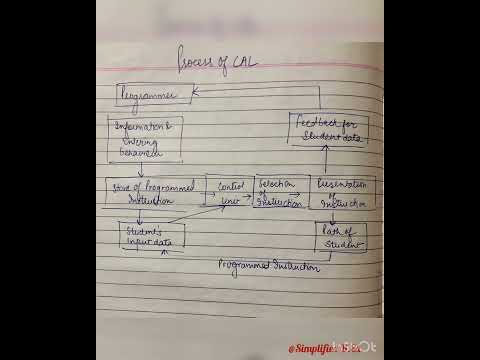 Process of CAL
Programmer
Information &
Entering
Behaviour
Feedback for
Student data
Store of Programmed
Instruction
Control
Unit
Selection
of
Instruction
Presentation
of
Instruction
Student's
Input data
Path of
Student
Programmed Instruction